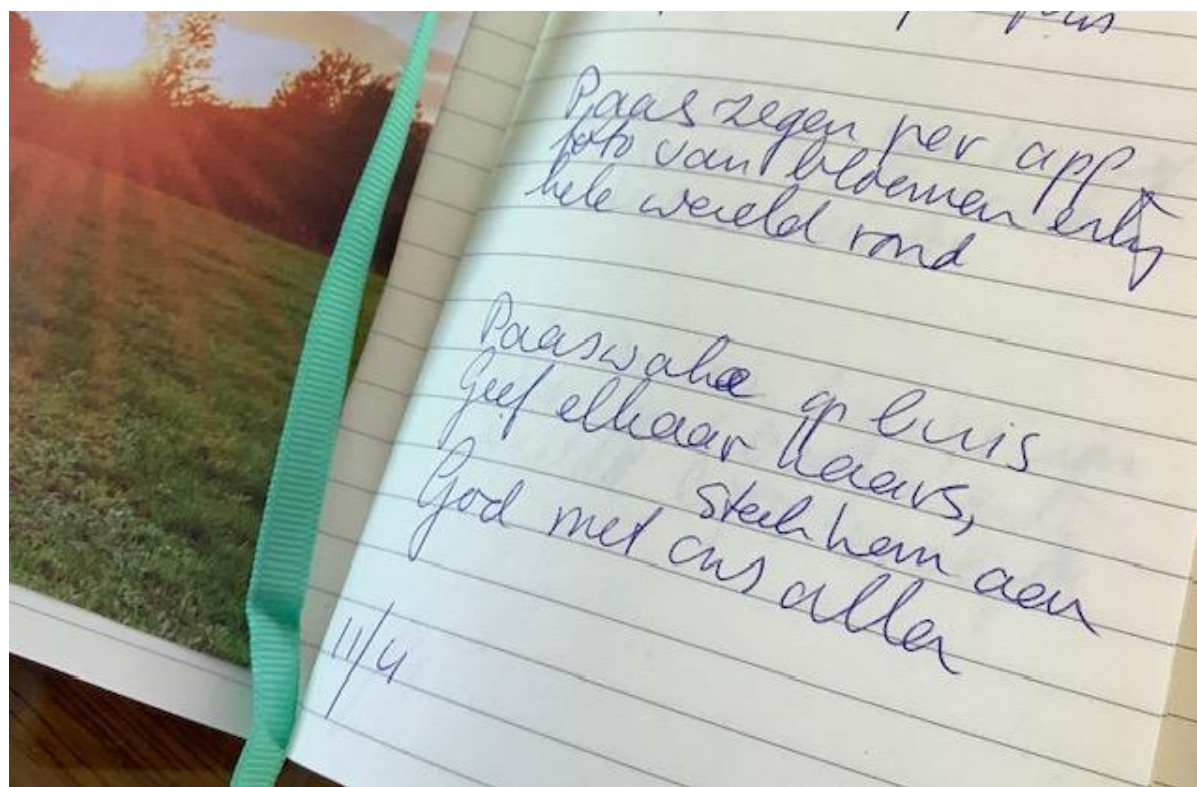 Paas zegen per app,
foto van bloemen erbij
hele wereld rond
Paaswake op buis
Geef elkaar kaars,
steek hem aan
God met ons allen
11/4